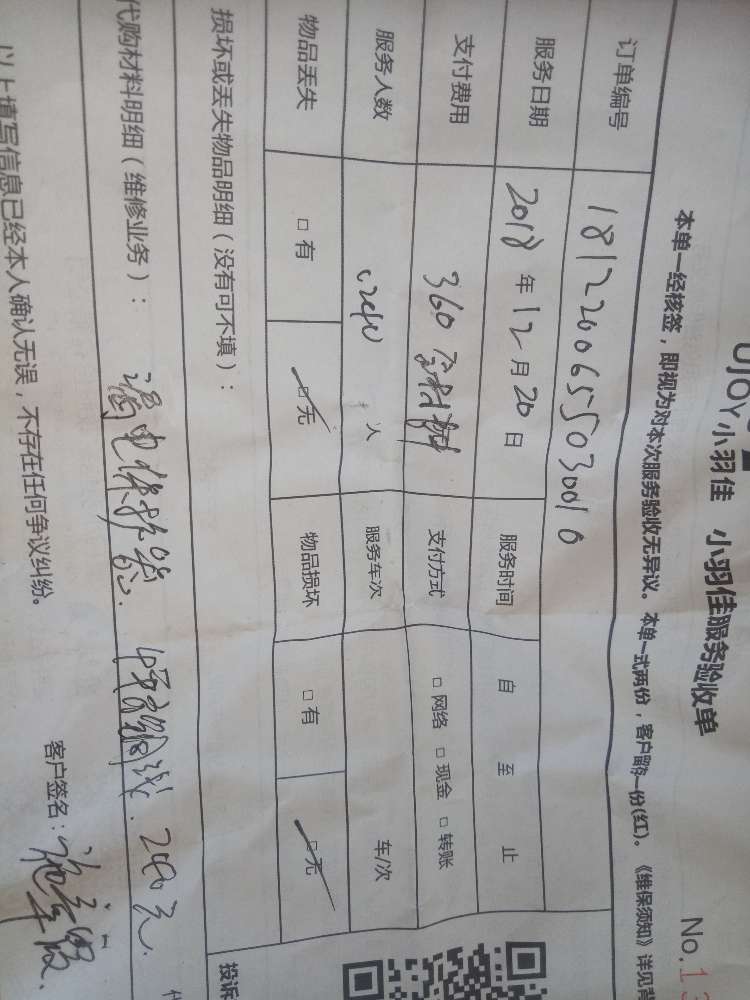 UJOY小羽佳 小羽佳服务验收单
No.13
本单一经核签，即视为对本次服务验收无异议。本单一式两份，客户留存一份(红)。《维保须知》详见背
订单编号 1812200655030010
服务日期 2018年12月20日 服务时间 自 至 止
支付费用 360 支付方式 □网络 □现金 □转账
服务人数 人 服务车次 车/次
物品丢失 □有 □无 物品损坏 □有 □无
损坏或丢失物品明细（没有可不填）：
投诉
代购材料明细（维修业务）：漏电保护器. 240元.
以上填写信息已经本人确认无误，不存在任何争议纠纷。
客户签名：